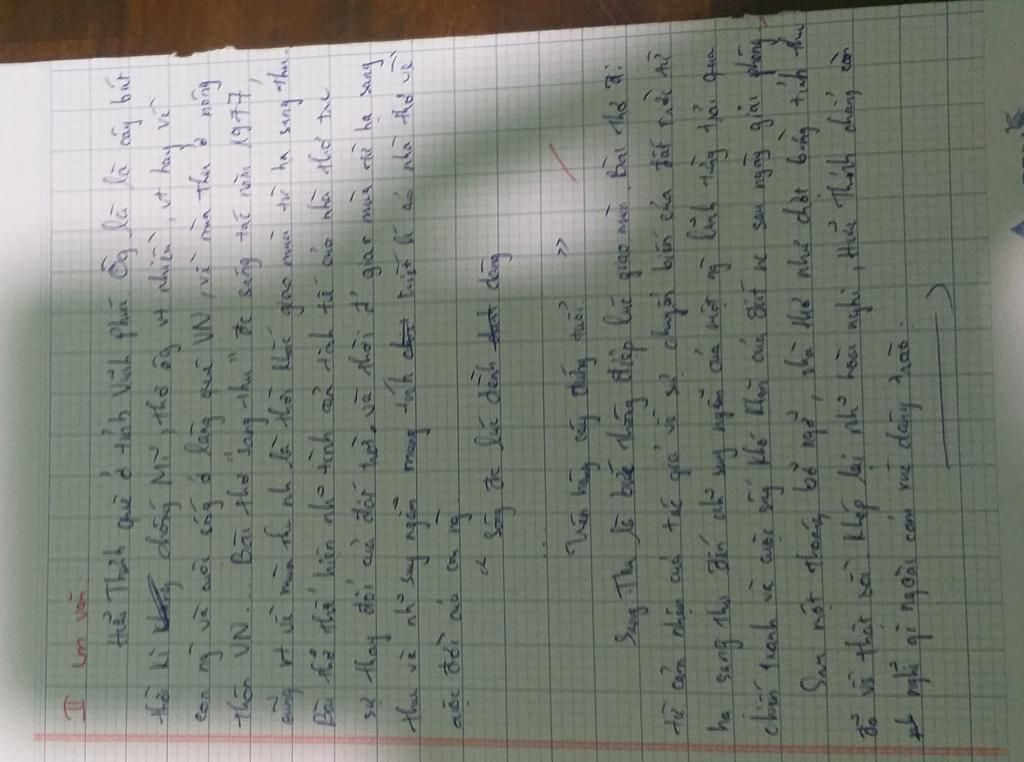 II Làm văn
Hữu Thỉnh quê ở tỉnh Vĩnh Phúc. Ông là là cây bút
thời kì chống Mĩ, thơ ông vt nhiều, vt hay về
con ng và cuôi sống ở làng quê VN, về mùa thu ở nông
thôn VN... Bài thơ "sang thu" đc sáng tác năm 1977,
cũng vt về mùa thu nh là thời khắc giao mùa từ hạ sang thu.
Bài thơ thể hiện nhữ tình cảm tinh tế của nhà thơ trc
sự thay đổi của đất trời và thời đ' giao mùa từ hạ sang
thu và nhữ suy ngẫm mang tính triết lí của nhà thơ về
cuộc đời của con ng
" Sông đc lúc dềnh dàng
...
Trên hàng cây đứng tuổi. "
Sang Thu là bức thông điệp lúc giao mùa. Bài thơ đi
từ cảm nhận của tác giả về sự chuyển biến của đất trời từ
hạ sang thu đến nhữ suy ngẫm của một ng lính từng trải qua
chiến tranh và cuộc sống khó khăn của đất nc sau ngày giải phóng
Sau một thoáng bỡ ngỡ, nhà thơ như chợt bừng tỉnh thu
đã về thật rồi. Khép lại nhữ hoài nghi, Hữu Thỉnh chẳng còn
nghi gì ngoài cảm xúc dâng trào.